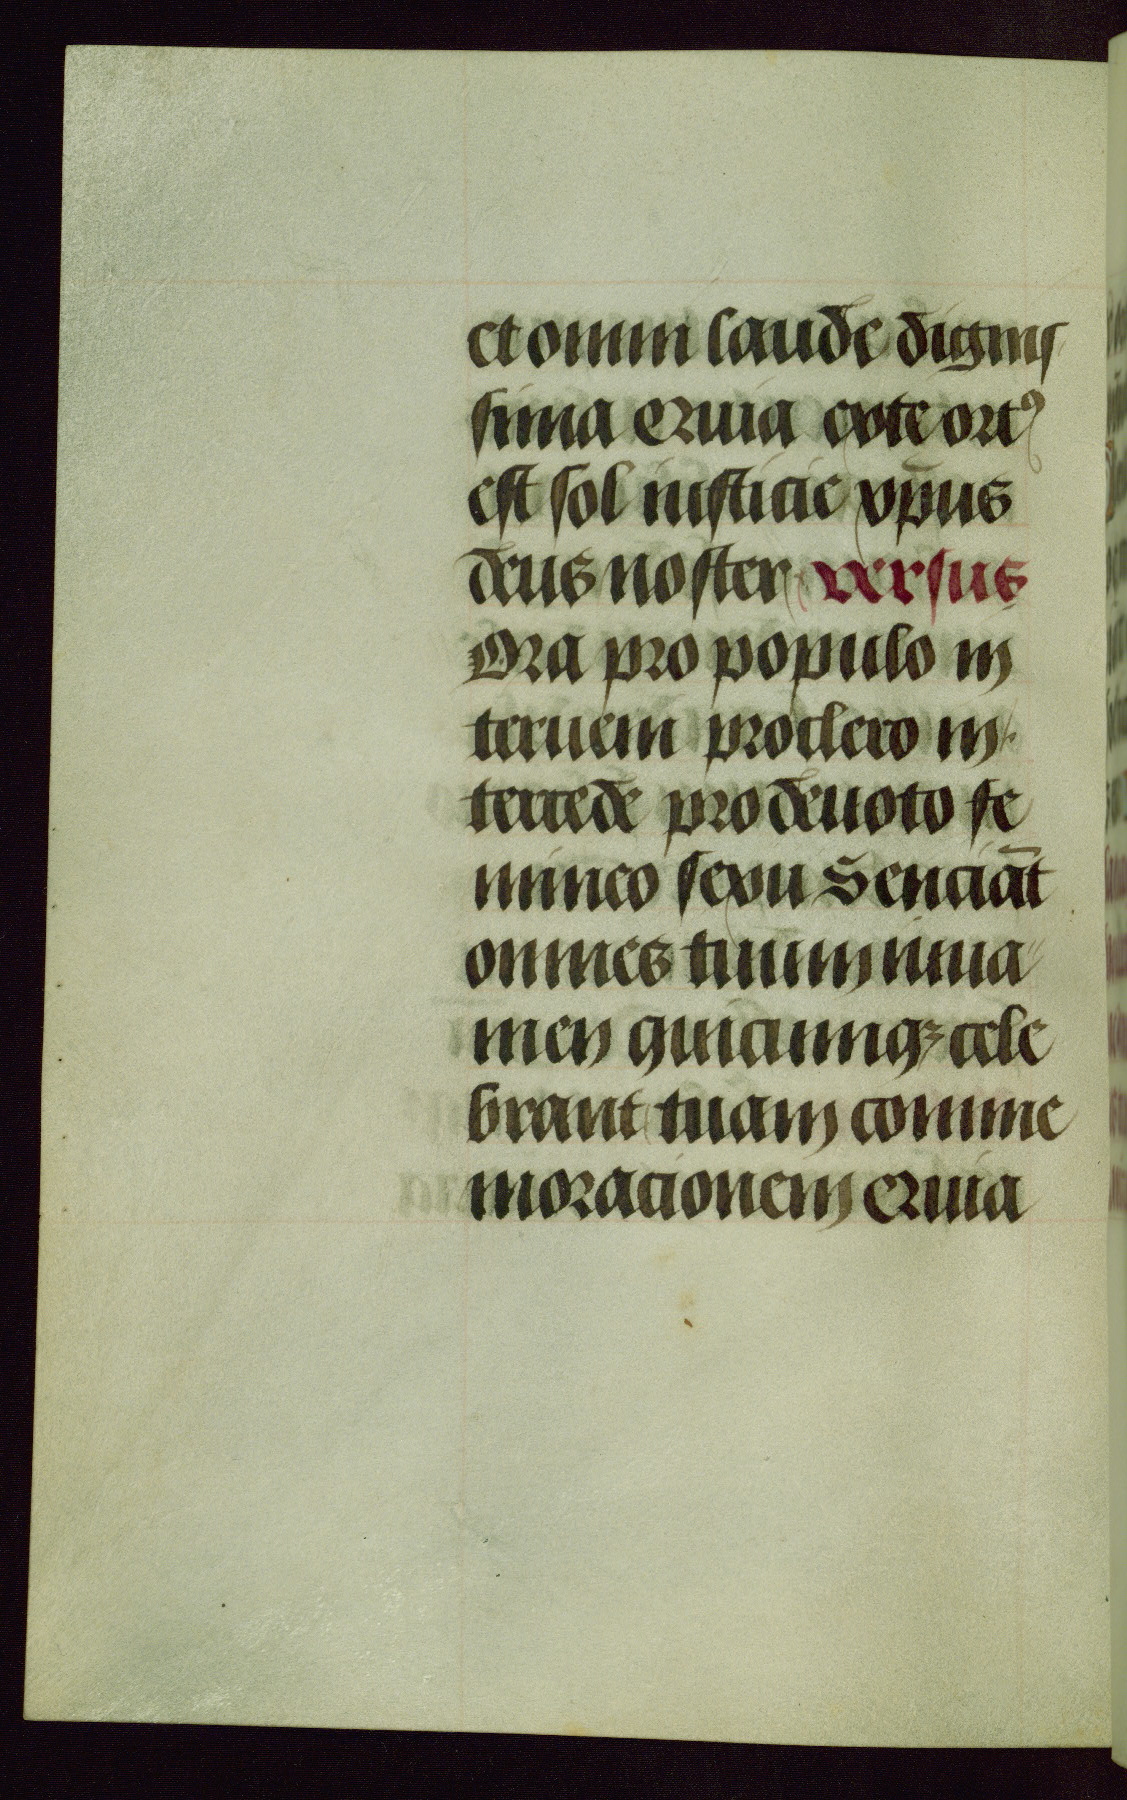 et omni laude dignis
sima Quia ex te ort⁹
est sol iusticie xp̄us
deus noster versus
Ora pro populo in
terueni pro clero in
tercede pro deuoto fe
mineo sexu Senciāt
omnes tuum iuua
men quicumqꝫ cele
brant tuam comme
moracionem Quia